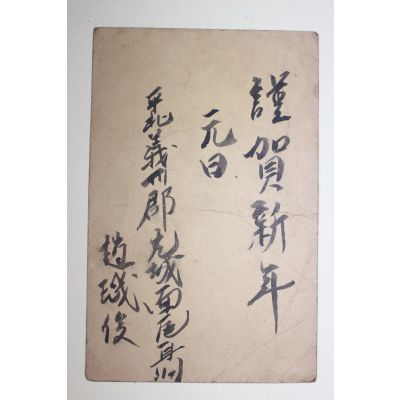 謹賀新年
元日
平北義州郡光城面
趙俊